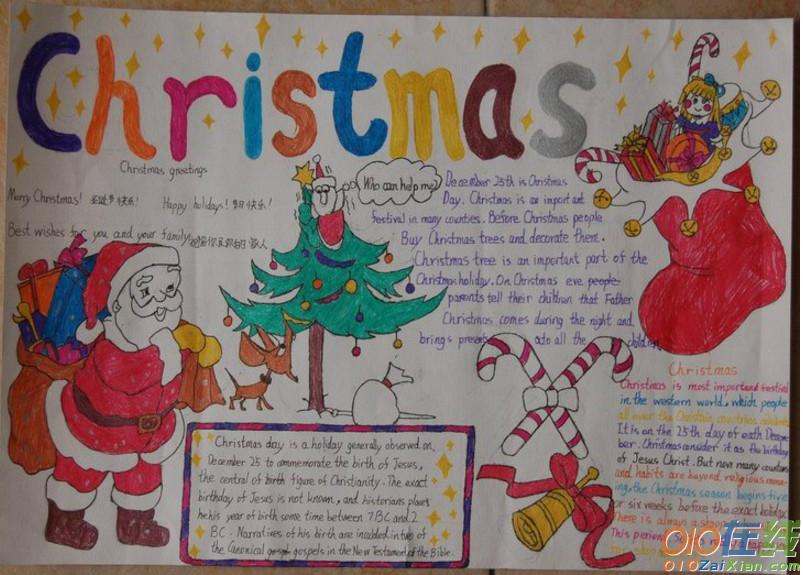 Christmas
Christmas greetings
Merry Christmas! 圣诞节快乐!
Happy holidays! 节日快乐!
Best wishes for you and your family
Who can help me?
December 25th is Christmas
Day. Christmas is an important
festival in many counties. Before Christmas people
Buy Christmas trees and decorate them.
Christmas tree is an important part of the
Christmas holiday. On Christmas eve people
parents tell their children that Father
Christmas comes during the night and
brings presents to all the children
Christmas day is a holiday generally observed on
December 25 to commemorate the birth of Jesus,
the central of birth figure of Christianity. The exact
birthday of Jesus is not known, and historians places
his year of birth some time between 7BC and 2
BC. Narratives of his birth are included in two of
the Canonical gospel gospels in the New Testament of the Bible.
Christmas
Christmas is most important festival
in the western world, which people
all over the Christian countries celebrate
It is on the 25th day of each Decem
ber. Christmas consider it as the birthday
of Jesus Christ. But now many
and habits are beyond religious mean
ing, the Christmas season begins five
or six weeks before the exact holiday
There is always a shopping
This period
010在线
010ZaiXian.com